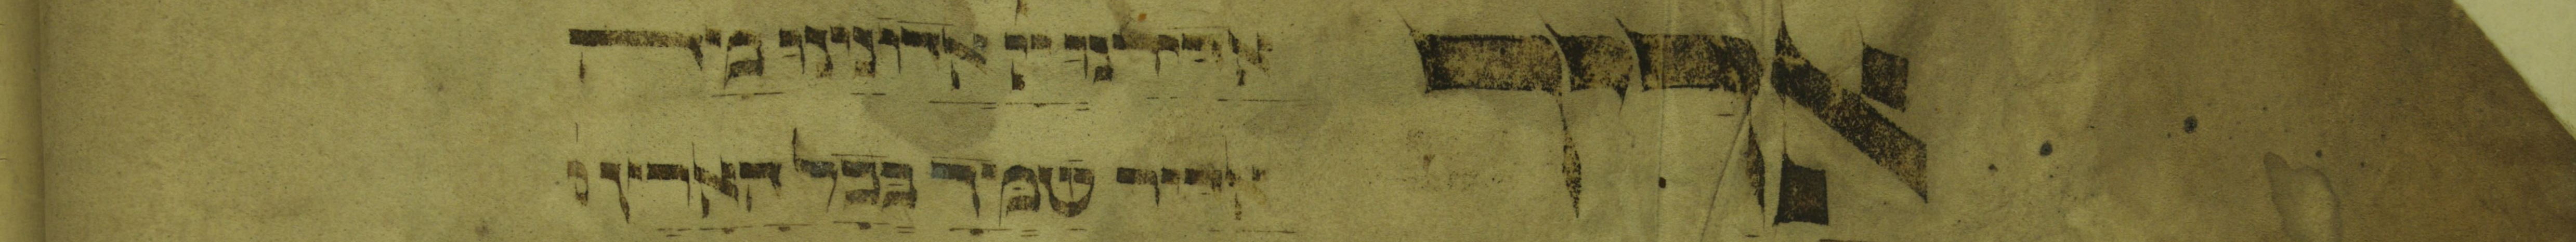 אדיר אדירנו יי אדונינו מה
אדיר שמך בכל הארץ